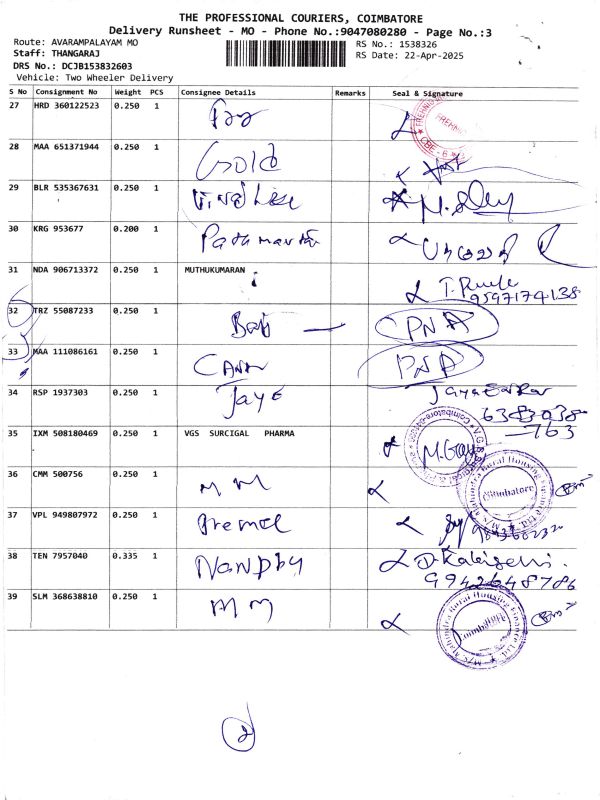 THE PROFESSIONAL COURIERS, COIMBATORE
Delivery Runsheet - MO - Phone No.:9047080280 - Page No.:3
Route: AVARAMPALAYAM MO
RS No.: 1538326
Staff: THANGARAJ
RS Date: 22-Apr-2025
DRS No.: DCJB153832603
Vehicle: Two Wheeler Delivery
S No Consignment No Weight PCS Consignee Details Remarks Seal & Signature
27 HRD 360122523 0.250 1
28 MAA 651371944 0.250 1 Gold
29 BLR 535367631 0.250 1
30 KRG 953677 0.200 1
31 NDA 906713372 0.250 1 MUTHUKUMARAN
9597174138
32 TRZ 55087233 0.250 1 CPNA
33 MAA 111086161 0.250 1 PNA
34 RSP 1937303 0.250 1 Jaye
6383038
763
35 IXM 508180469 0.250 1 VGS SURCIGAL PHARMA
36 CMM 500756 0.250 1 M M
M/s Mahindra Rural Housing Finance Ltd. Coimbatore
37 VPL 949807972 0.250 1
38 TEN 7957040 0.335 1
9942648786
39 SLM 368638810 0.250 1 M M
M/s Mahindra Rural Housing Finance Ltd. Coimbatore
2